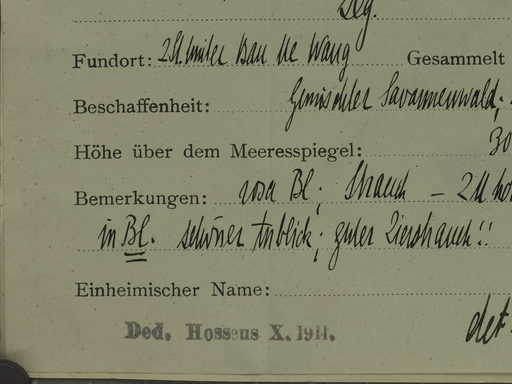 Fundort: 2 St. hinter Ban Me Wang Gesammelt
Beschaffenheit: Gemischter Savannenwald;
Höhe über dem Meeresspiegel: 30
Bemerkungen: rosa Bl; Strauch – 2 M ho
in Bl. schöner Anblick; guter Zierstrauch!!
Einheimischer Name:
Ded. Hosseus X. 1911.
det.